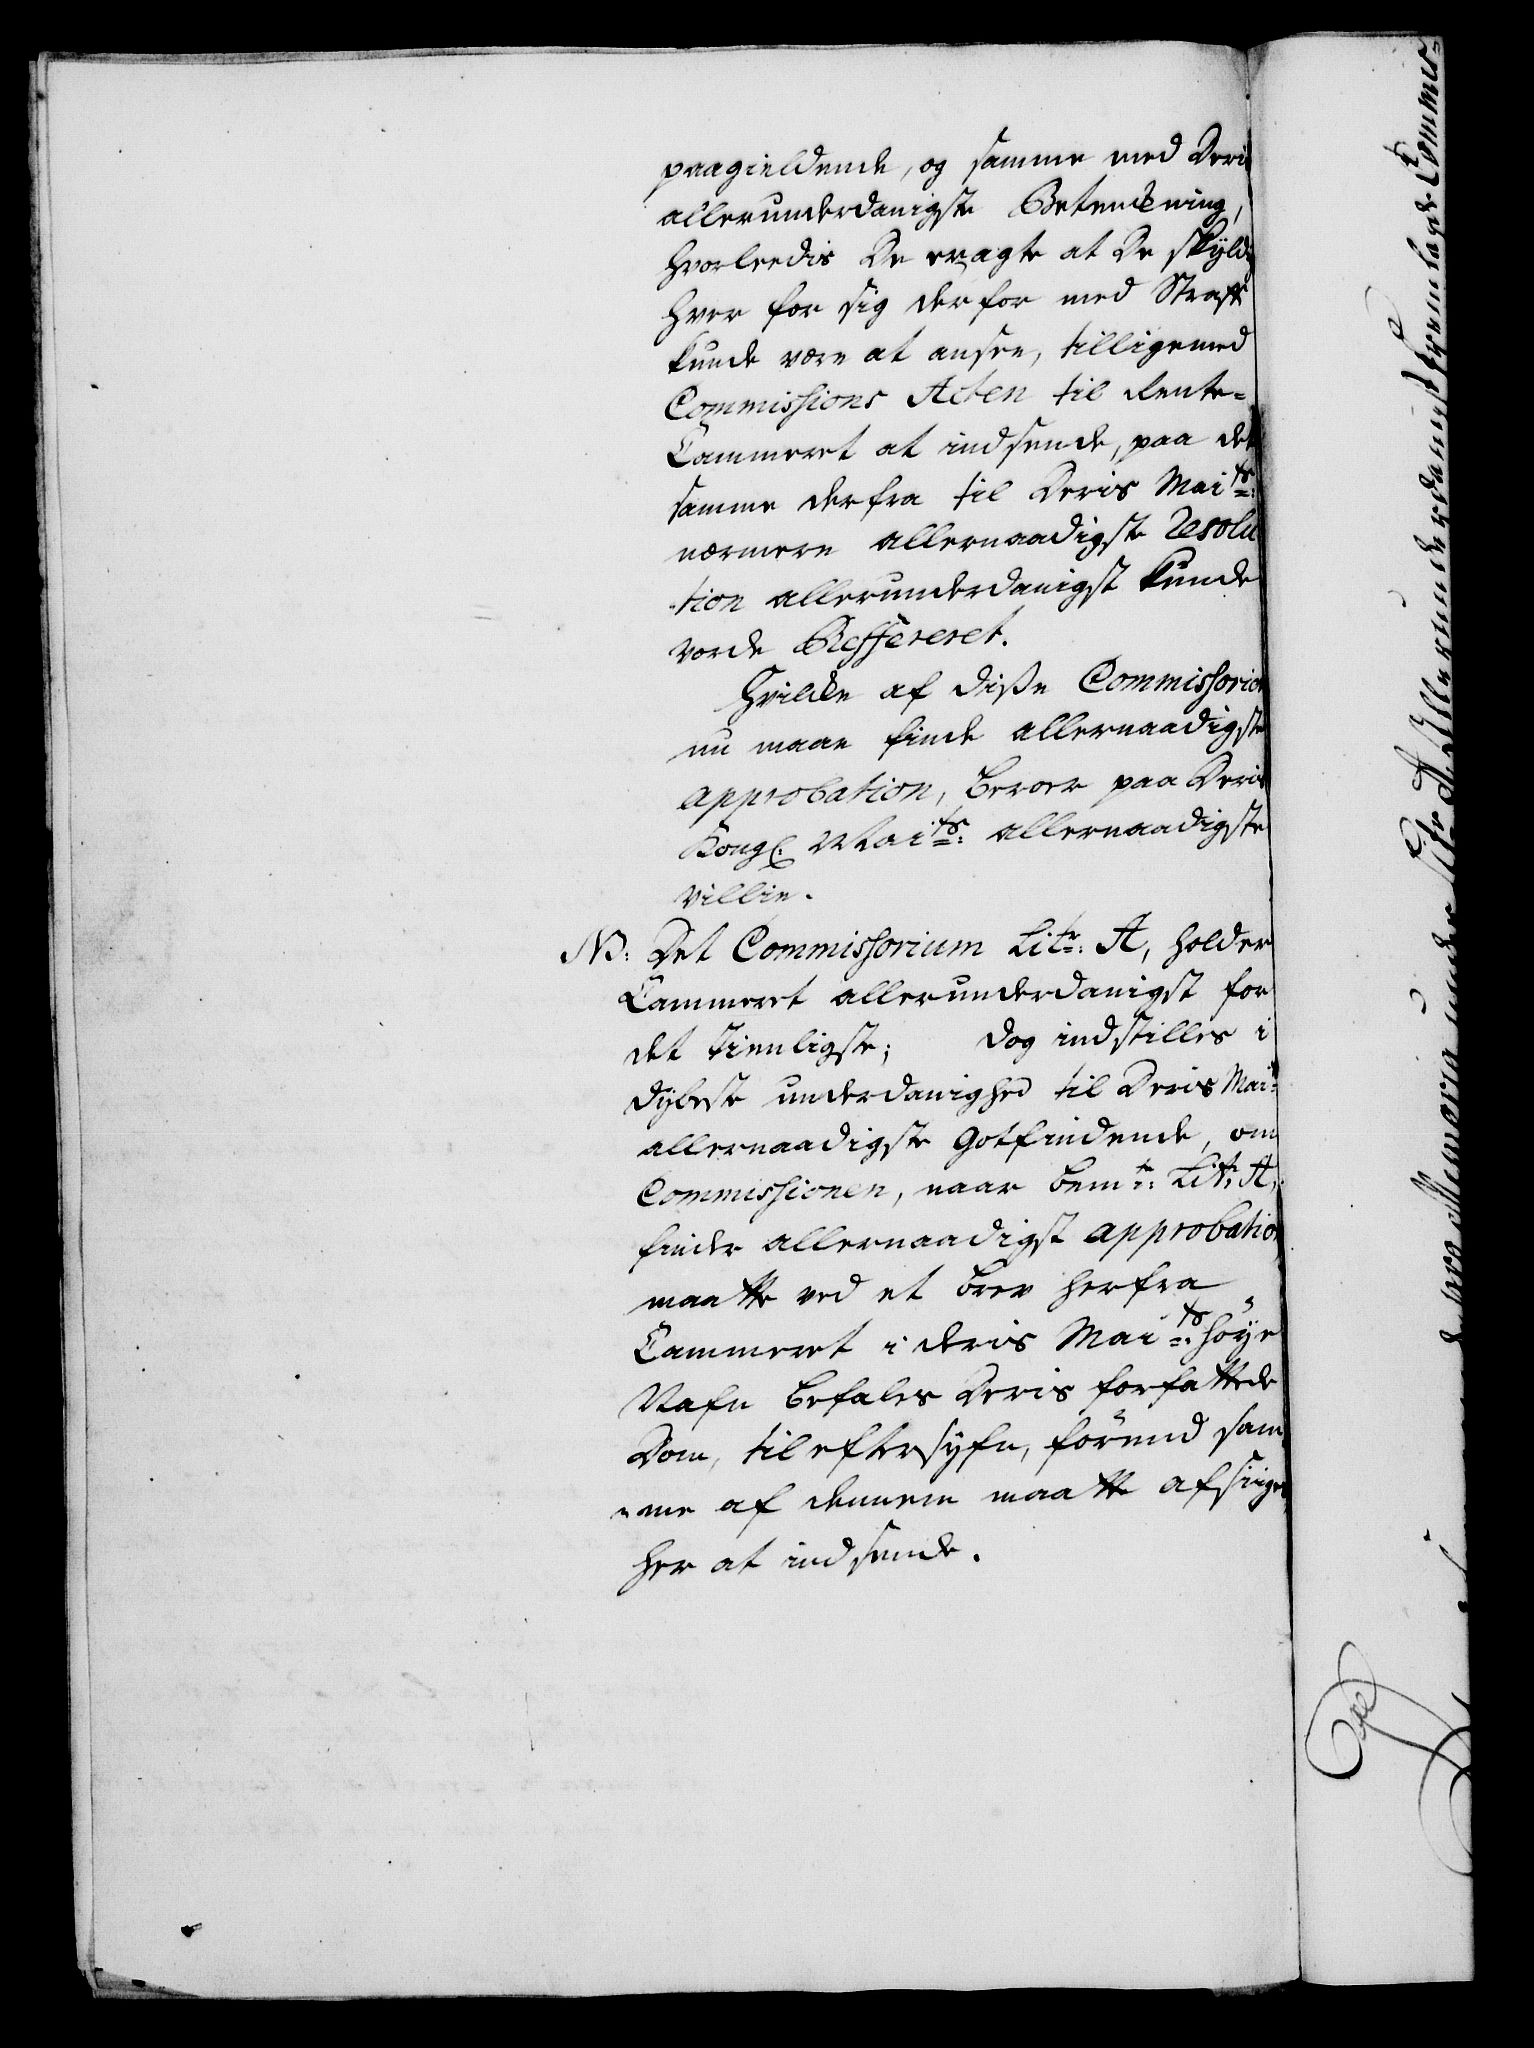 paagieldende, og samme med Deris
allerunderdanigste Betenckning,
hvorleedis De eragte at De skyldi
hver for sig derfor med Straff
kunde være at ansee, tilligemed
Commissions Acten til Rente=
Cammeret at indsende, paa det
samme derfra til Deris Mai^ts:
nærmere allernaadigste Resolu
tion allerunderdanigst kunde
vorde Refferéret.
Hvilcken af disse Commissorier
nu maae finde allernaadigste
approbation, beroer paa Deris
Kongl. Mai^ts: allernaadigste
Villie.
NB: Det Commissorium Litr: A, holder
Cammeret allerunderdanigst for
det tienligste; Dog indstilles i
dybeste underdanighed til Deris Mai^ts
allernaadigste Gotfindende, om
Commissionen, naar bem^te: Litr: A,
finder allernaadigst approbation
maatte ved et brev herfra
Cammeret i deris Mai^ts: höye
Nafn befales Deris forfattede
Dom, til eftersyfn, förend sam
=me af dennem maatte afsiiges
her at indsende.